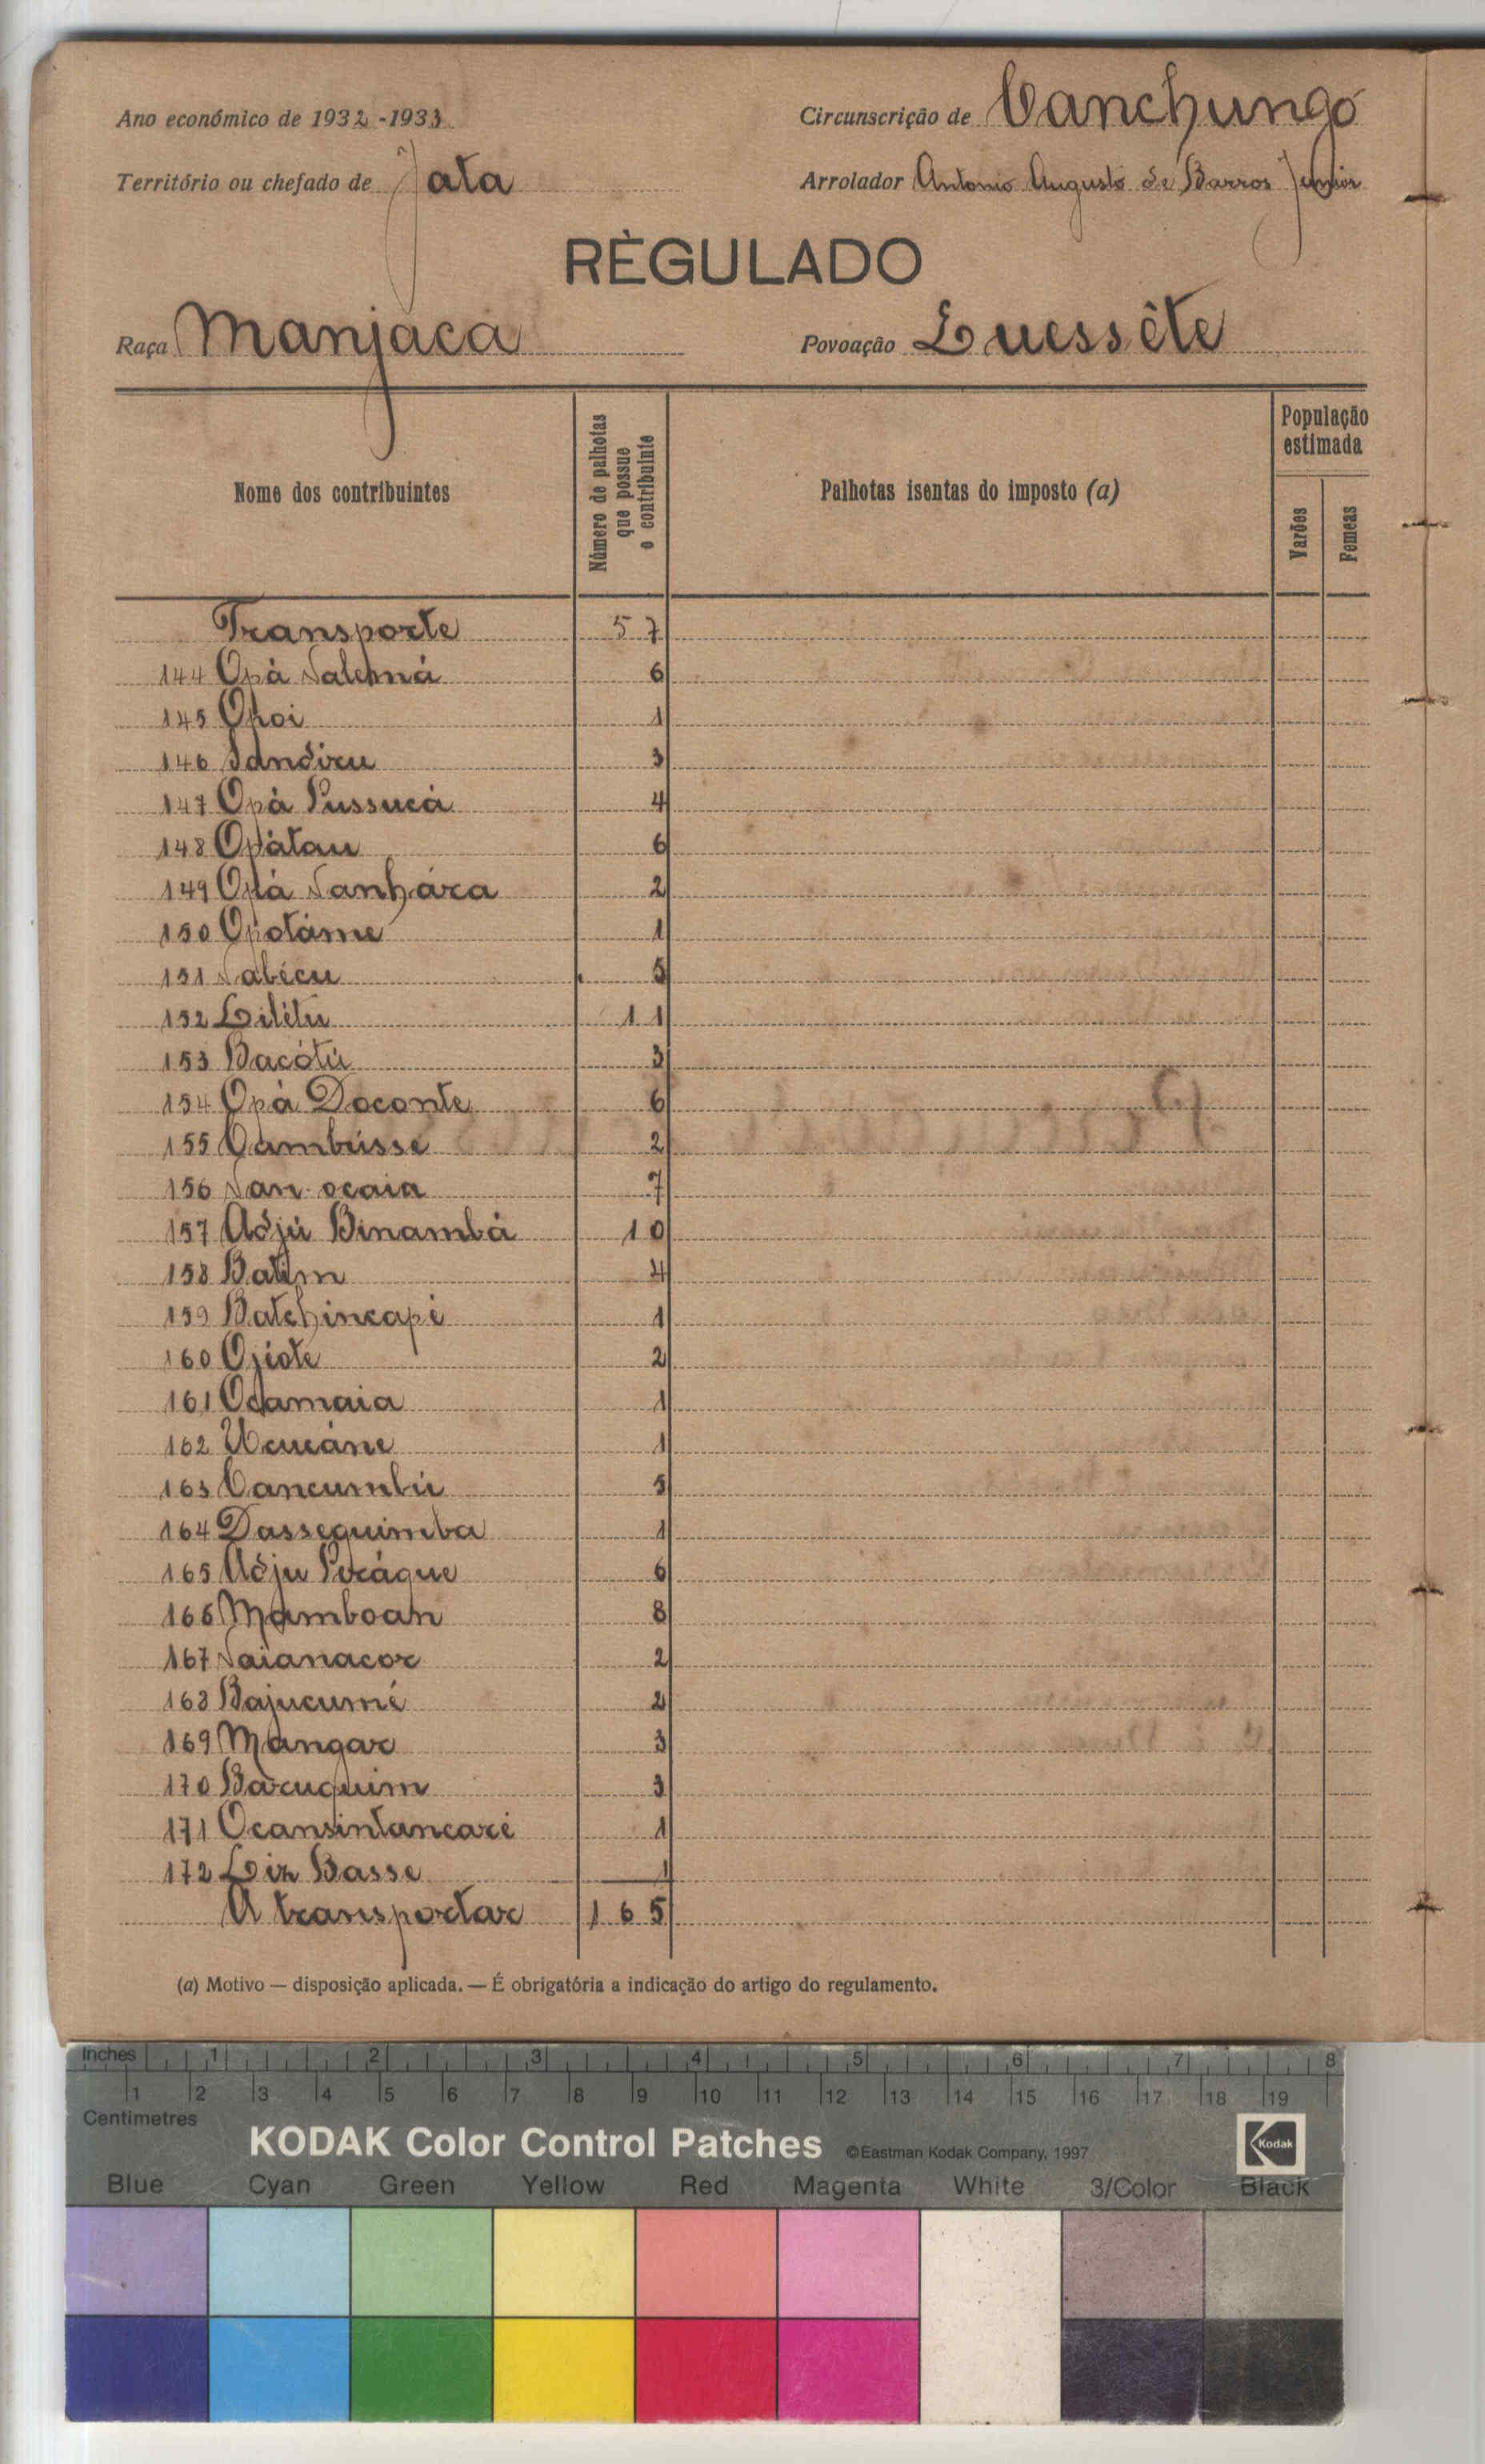 Ano económico de 1932-1933
Circunscrição de Canchungo
Território ou chefado de Jata
Arrolador Antonio Augusto de Barros Junior
RÈGULADO
Raça Manjaca
Povoação Luessête
Nome dos contribuintes
Número de palhotas que possue o contribuinte
Palhotas isentas do imposto (a)
População estimada
Varões
Femeas
Transporte 57
144 Opà 6
145 Opoi 1
146 3
147 Opà Pussucá 4
148 Opátau 6
149 Opà Nanhára 2
150 Opotáme 1
151 Nabécu 5
152 Lilétu 11
153 Bacótú 3
154 Opà Doconte 6
155 Cambússe 2
156 Nan-ocaia 7
157 Adjú Binambá 10
158 Batim 4
159 Batchincapé 1
160 2
161 Ocamaia 1
162 Ucucáne 1
163 Cancumbú 5
164 Dassequimba 1
165 Adju 6
166 Mamboan 8
167 Naianacor 2
168 Bajucumé 2
169 Mangar 3
170 Bacuquim 3
171 Ocansintancaré 1
172 Basse 1
A transportar 165
(a) Motivo — disposição aplicada. — É obrigatória a indicação do artigo do regulamento.
Inches 1 2 3 4 5 6 7 8
1 2 3 4 5 6 7 8 9 10 11 12 13 14 15 16 17 18 19
Centimetres
KODAK Color Control Patches ©Eastman Kodak Company, 1997 Kodak
Blue Cyan Green Yellow Red Magenta White 3/Color Black